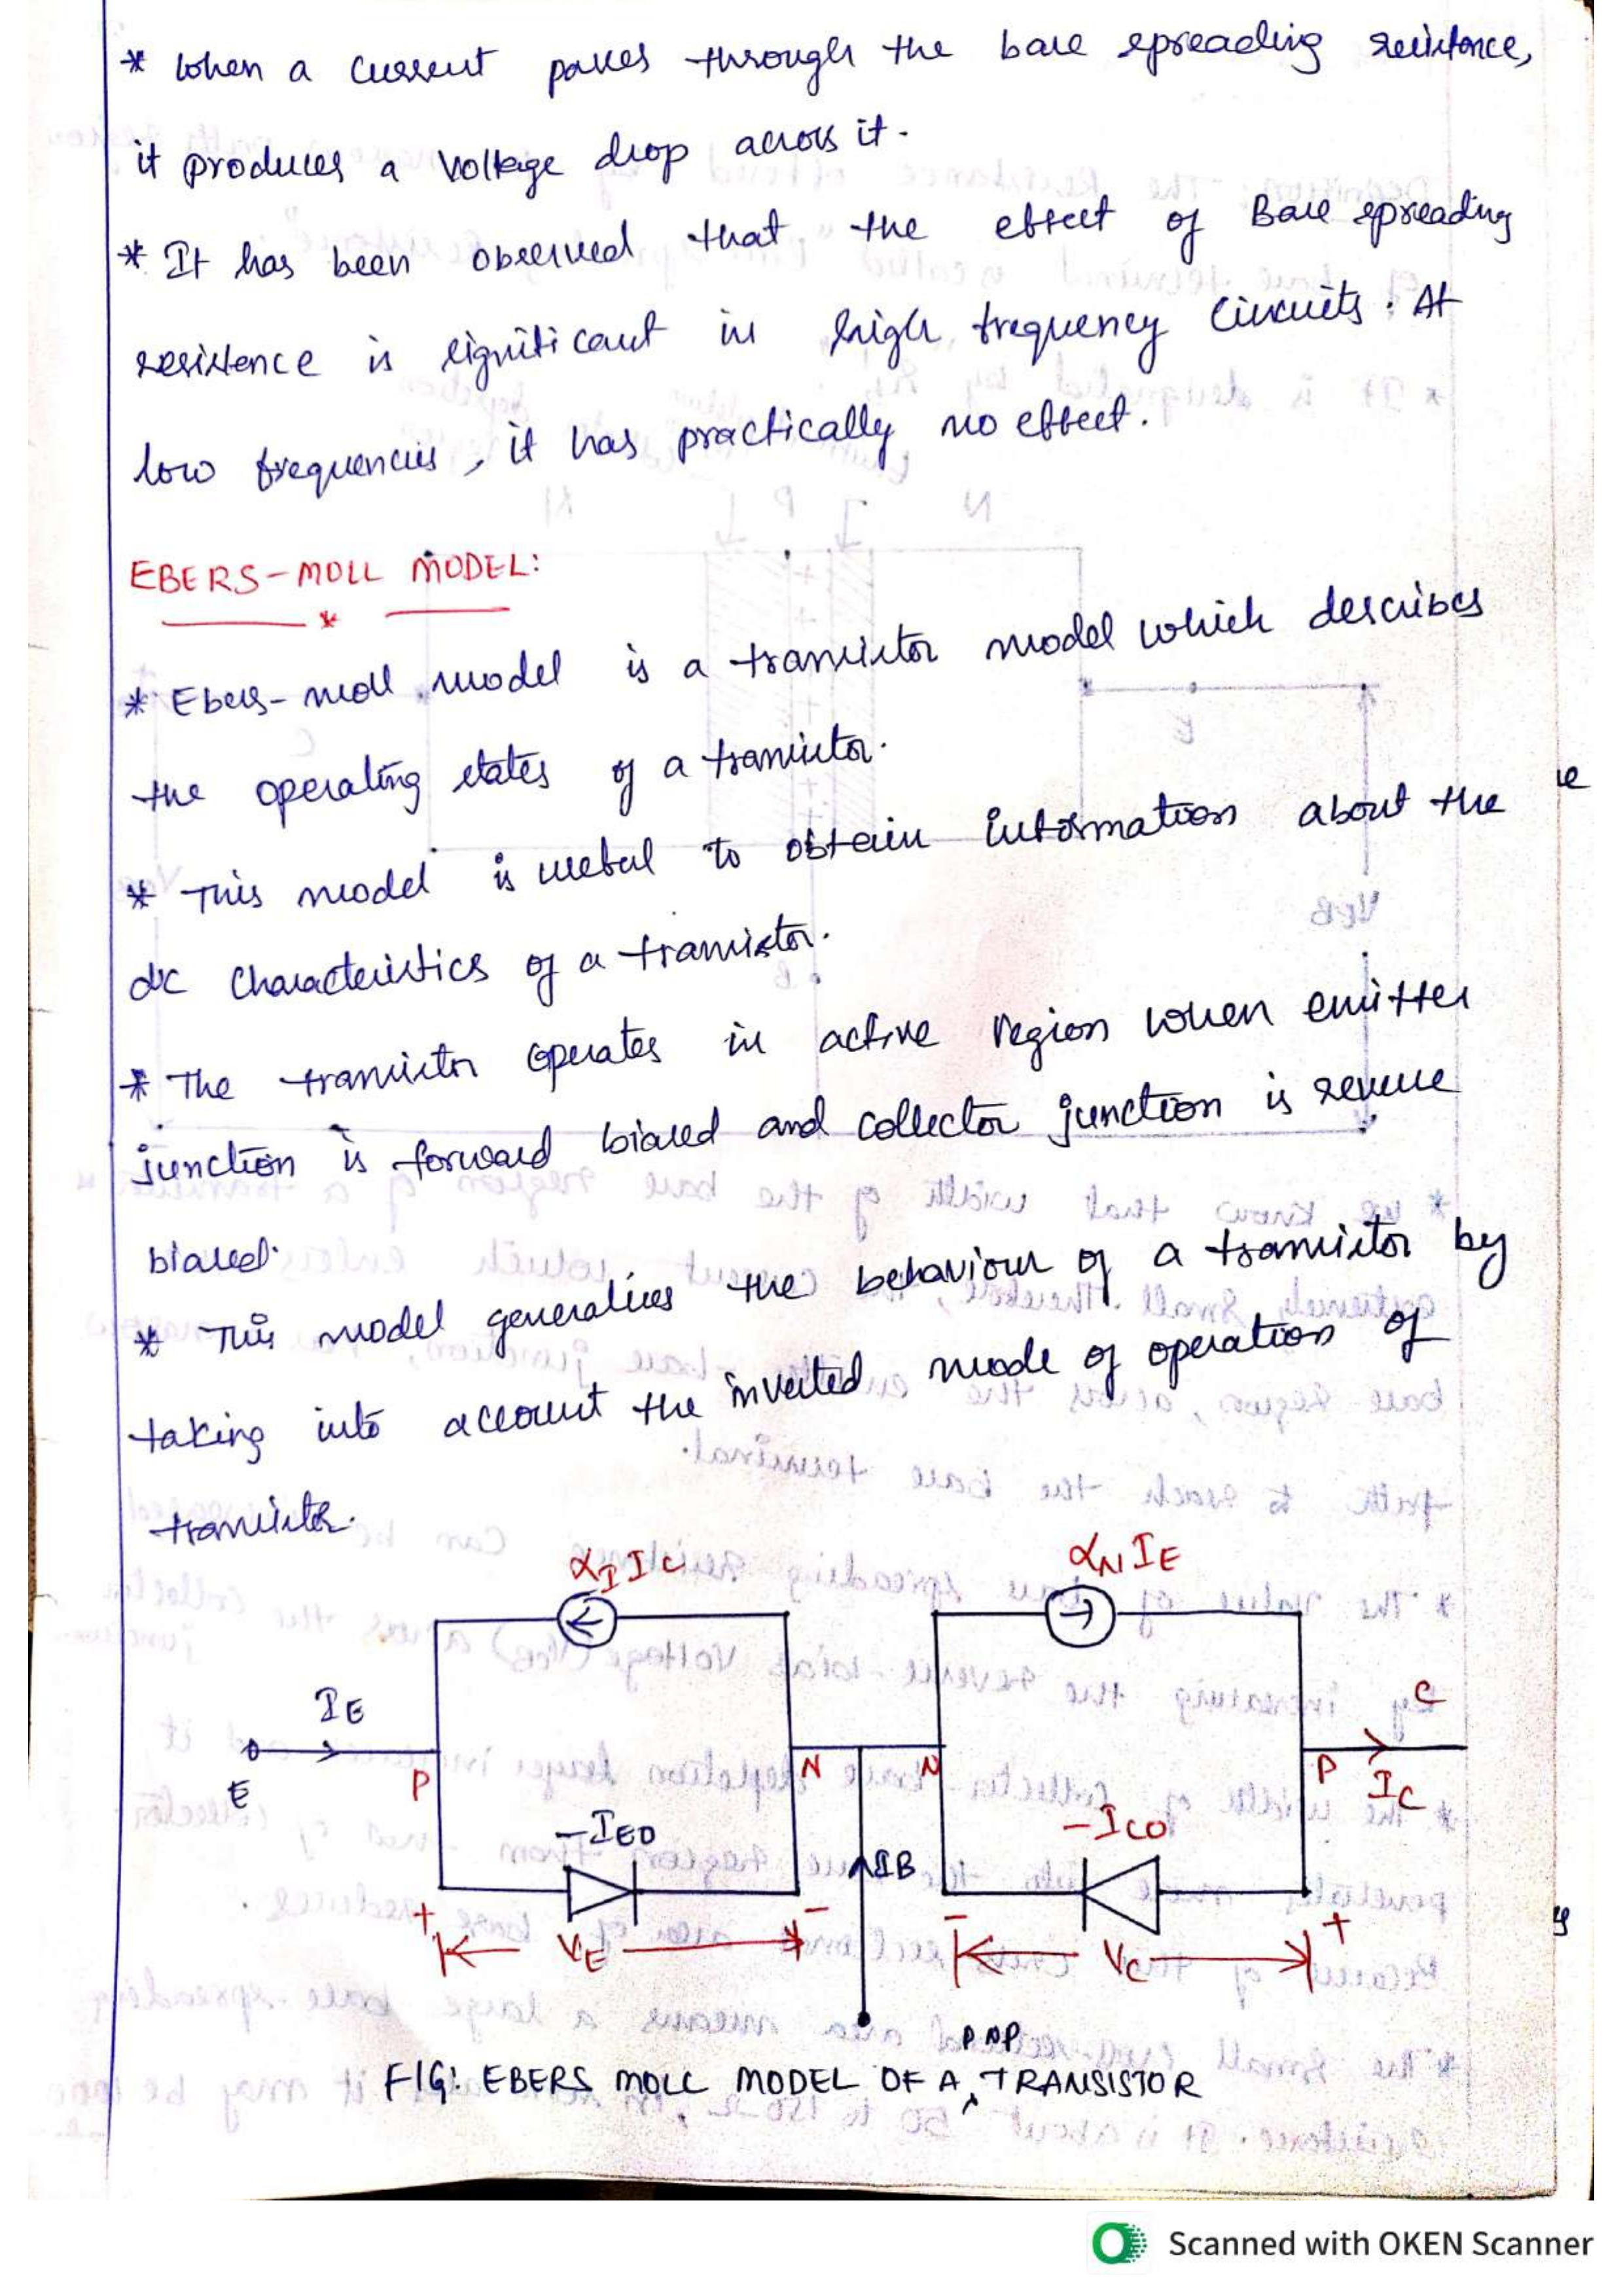 * When a current passes through the base spreading resistance,
it produces a voltage drop across it.
* It has been observed that the effect of Base spreading
resistence is significant in high frequency circuits. At
low frequencies, it has practically no effect.
EBERS-MOLL MODEL:
* Ebers-moll model is a transistor model which describes
the operating states of a transistor.
* This model is useful to obtain information about the
dc characteristics of a transistor.
* The transistor operates in active region when emitter
junction is forward biased and collector junction is reverse
biased.
* This model generalises the behaviour of a transistor by
taking into account the inverted mode of operation of
transistor.
αI IC αN IE
IE C
E P N N P IC
-IEO -ICO
IB
+ - - +
VE VC
PNP
FIG: EBERS MOLL MODEL OF A TRANSISTOR
Scanned with OKEN Scanner